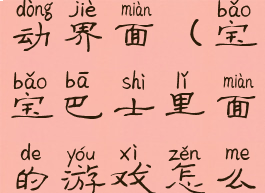 dòng jiè miàn bǎo
动界面（宝
bǎo bā shì lǐ miàn
宝巴士里面
de yóu xì zěn me
的游戏怎么